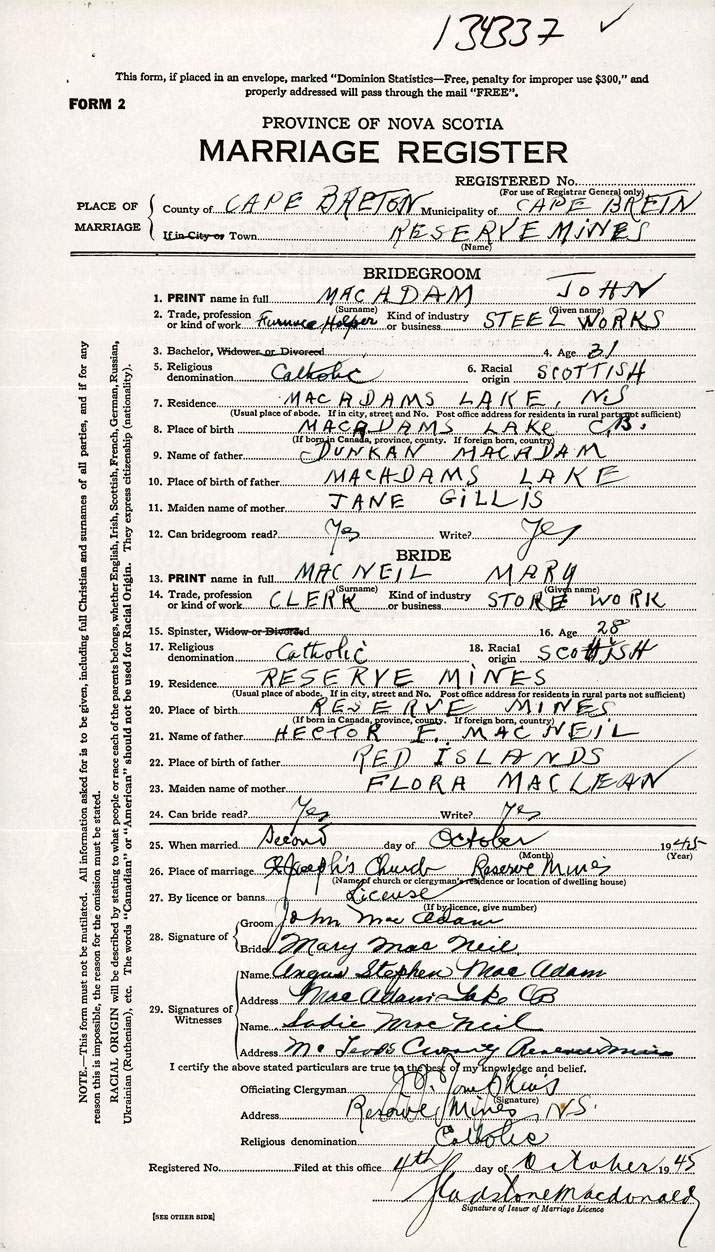 134337 ✓
This form, if placed in an envelope, marked "Dominion Statistics—Free, penalty for improper use $300," and
properly addressed will pass through the mail "FREE".
FORM 2
PROVINCE OF NOVA SCOTIA
MARRIAGE REGISTER
REGISTERED No.
(For use of Registrar General only)
PLACE OF MARRIAGE
County of CAPE BRETON Municipality of CAPE BRETN
If in City or Town RESERVE MINES
(Name)
BRIDEGROOM
1. PRINT name in full MACADAM JOHN
(Surname) (Given name)
2. Trade, profession or kind of work Furnace Helper Kind of industry or business STEEL WORKS
3. Bachelor, Widower or Divorced 4. Age 31
5. Religious denomination Catholic 6. Racial origin SCOTTISH
7. Residence MACADAMS LAKE, NS
(Usual place of abode. If in city, street and No. Post office address for residents in rural parts not sufficient)
8. Place of birth MACADAMS LAKE C.B.
(If born in Canada, province, county. If foreign born, country)
9. Name of father DUNKAN MACADAM
10. Place of birth of father MACADAMS LAKE
11. Maiden name of mother JANE GILLIS
12. Can bridegroom read? Yes Write? Yes
BRIDE
13. PRINT name in full MACNEIL MARY
(Surname) (Given name)
14. Trade, profession or kind of work CLERK Kind of industry or business STORE WORK
15. Spinster, Widow or Divorced 16. Age 28
17. Religious denomination Catholic 18. Racial origin SCOTTISH
19. Residence RESERVE MINES
(Usual place of abode. If in city, street and No. Post office address for residents in rural parts not sufficient)
20. Place of birth RESERVE MINES
(If born in Canada, province, county. If foreign born, country)
21. Name of father HECTOR F. MACNEIL
22. Place of birth of father RED ISLANDS
23. Maiden name of mother FLORA MACLEAN
24. Can bride read? Yes Write? Yes
25. When married Second day of October 1945
(Month) (Year)
26. Place of marriage St Joseph's Church Reserve Mines
(Name of church or clergyman's residence or location of dwelling house)
27. By licence or banns License
(If by licence, give number)
28. Signature of
Groom John Mac Adam
Bride Mary Mac Neil
29. Signatures of Witnesses
Name Angus Stephen Mac Adam
Address Mac Adams Lake CB
Name Sadie Mac Neil
Address Reserve Mines
I certify the above stated particulars are true to the best of my knowledge and belief.
Officiating Clergyman J.J. Tompkins
(Signature)
Address Reserve Mines, NS.
Religious denomination Catholic
Registered No. Filed at this office 4th day of October 1945
Gladstone Macdonald
Signature of Issuer of Marriage Licence
[SEE OTHER SIDE]
NOTE.—This form must not be mutilated. All information asked for is to be given, including full Christian and surnames of all parties, and if for any
reason this is impossible, the reason for the omission must be stated.
RACIAL ORIGIN will be described by stating to what people or race each of the parents belongs, whether English, Irish, Scottish, French, German, Russian,
Ukrainian (Ruthenian), etc. The words "Canadian" or "American" should not be used for Racial Origin. They express citizenship (nationality).